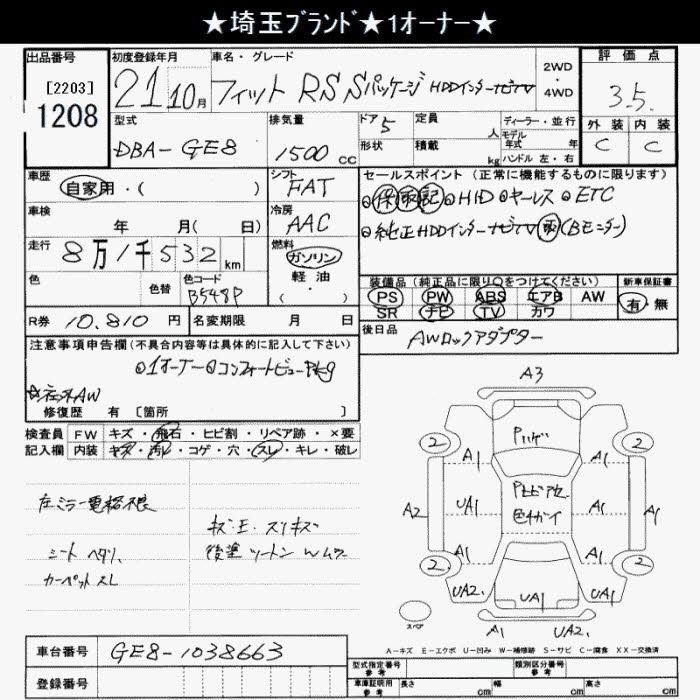 ★埼玉ﾌﾞﾗﾝﾄﾞ★1オーナー★
出品番号 初度登録年月 車名・グレード 評価点
[2203]
1208
21年10月 フィット RS Sパッケージ HDDインターナビTV 2WD・4WD 3.5
型式 排気量 ドア 5 定員 人 ディーラー・並行 外装 内装
DBA-GE8 1500cc 形状 積載 kg モデル年式 年式 ハンドル 左・右 C C
車歴 シフト セールスポイント(正常に機能するものに限ります)
自家用・( ) FAT 保 取 記 HID キーレス ETC
車検 冷房
年 月( 日) AAC 純正HDDインターナビTV (Bモニター)
走行 燃料
8万1千532km ガソリン 装備品(純正品に限り○をつけてください) 新車保証書
色 色替 色コード 軽油 PS PW ABS エアB AW 有・無
B548P ・( ) SR ナビ TV カワ
R券 10,810円 名変期限 月 日 後日品
AWロックアダプター
注意事項申告欄(不具合内容等は具体的に記入して下さい)
1オーナー コンフォートビューPkg
☆社外AW
修復歴 有 [箇所 ]
検査員 FW キズ・飛石・ヒビ割・リペア跡・×要
記入欄 内装 キズ・汚レ・コゲ・穴・スレ・キレ・破レ
左ミラー電格不良
キズ・エ・スリキズ
シート ヘタリ 後塗ツートン Wムラ
カーペットスレ
A3
Pハゲ
2 2
A1 A1
A2 UA1 UA1 A1
色ガイ
A1 A1
2 2
UA2 UA1 UA1
スペア A1 UA2
A-キズ E-エクボ U-凹み W-補修跡 S-サビ C-腐食 XX-交換済
車台番号 GE8-1038663
型式指定番号 参考 類別区分番号 参考
登録番号
車庫証明用 参考 長さ cm 幅 cm 高さ cm